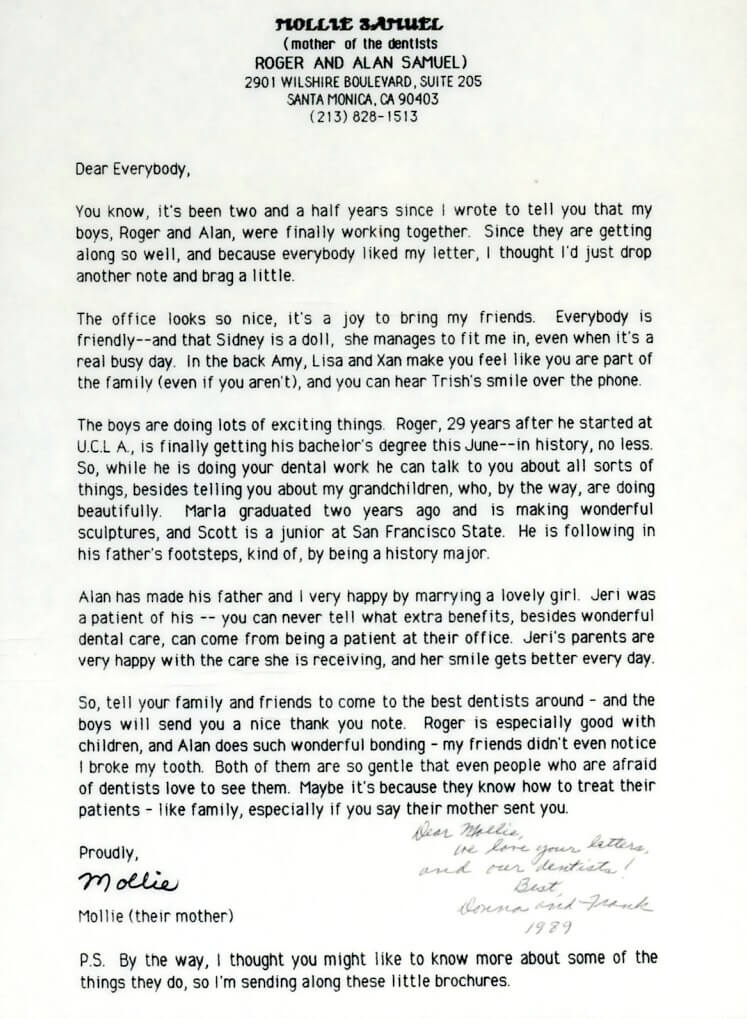 MOLLIE SAMUEL
(mother of the dentists
ROGER AND ALAN SAMUEL)
2901 WILSHIRE BOULEVARD, SUITE 205
SANTA MONICA, CA 90403
(213) 828-1513
Dear Everybody,
You know, it's been two and a half years since I wrote to tell you that my
boys, Roger and Alan, were finally working together. Since they are getting
along so well, and because everybody liked my letter, I thought I'd just drop
another note and brag a little.
The office looks so nice, it's a joy to bring my friends. Everybody is
friendly--and that Sidney is a doll, she manages to fit me in, even when it's a
real busy day. In the back Amy, Lisa and Xan make you feel like you are part of
the family (even if you aren't), and you can hear Trish's smile over the phone.
The boys are doing lots of exciting things. Roger, 29 years after he started at
U.C.L A., is finally getting his bachelor's degree this June--in history, no less.
So, while he is doing your dental work he can talk to you about all sorts of
things, besides telling you about my grandchildren, who, by the way, are doing
beautifully. Marla graduated two years ago and is making wonderful
sculptures, and Scott is a junior at San Francisco State. He is following in
his father's footsteps, kind of, by being a history major.
Alan has made his father and I very happy by marrying a lovely girl. Jeri was
a patient of his -- you can never tell what extra benefits, besides wonderful
dental care, can come from being a patient at their office. Jeri's parents are
very happy with the care she is receiving, and her smile gets better every day.
So, tell your family and friends to come to the best dentists around - and the
boys will send you a nice thank you note. Roger is especially good with
children, and Alan does such wonderful bonding - my friends didn't even notice
I broke my tooth. Both of them are so gentle that even people who are afraid
of dentists love to see them. Maybe it's because they know how to treat their
patients - like family, especially if you say their mother sent you.
Proudly,
Mollie
Mollie (their mother)
Dear Mollie,
We love your letters,
and our dentists!
Best,
Donna and Frank
1989
P.S. By the way, I thought you might like to know more about some of the
things they do, so I'm sending along these little brochures.